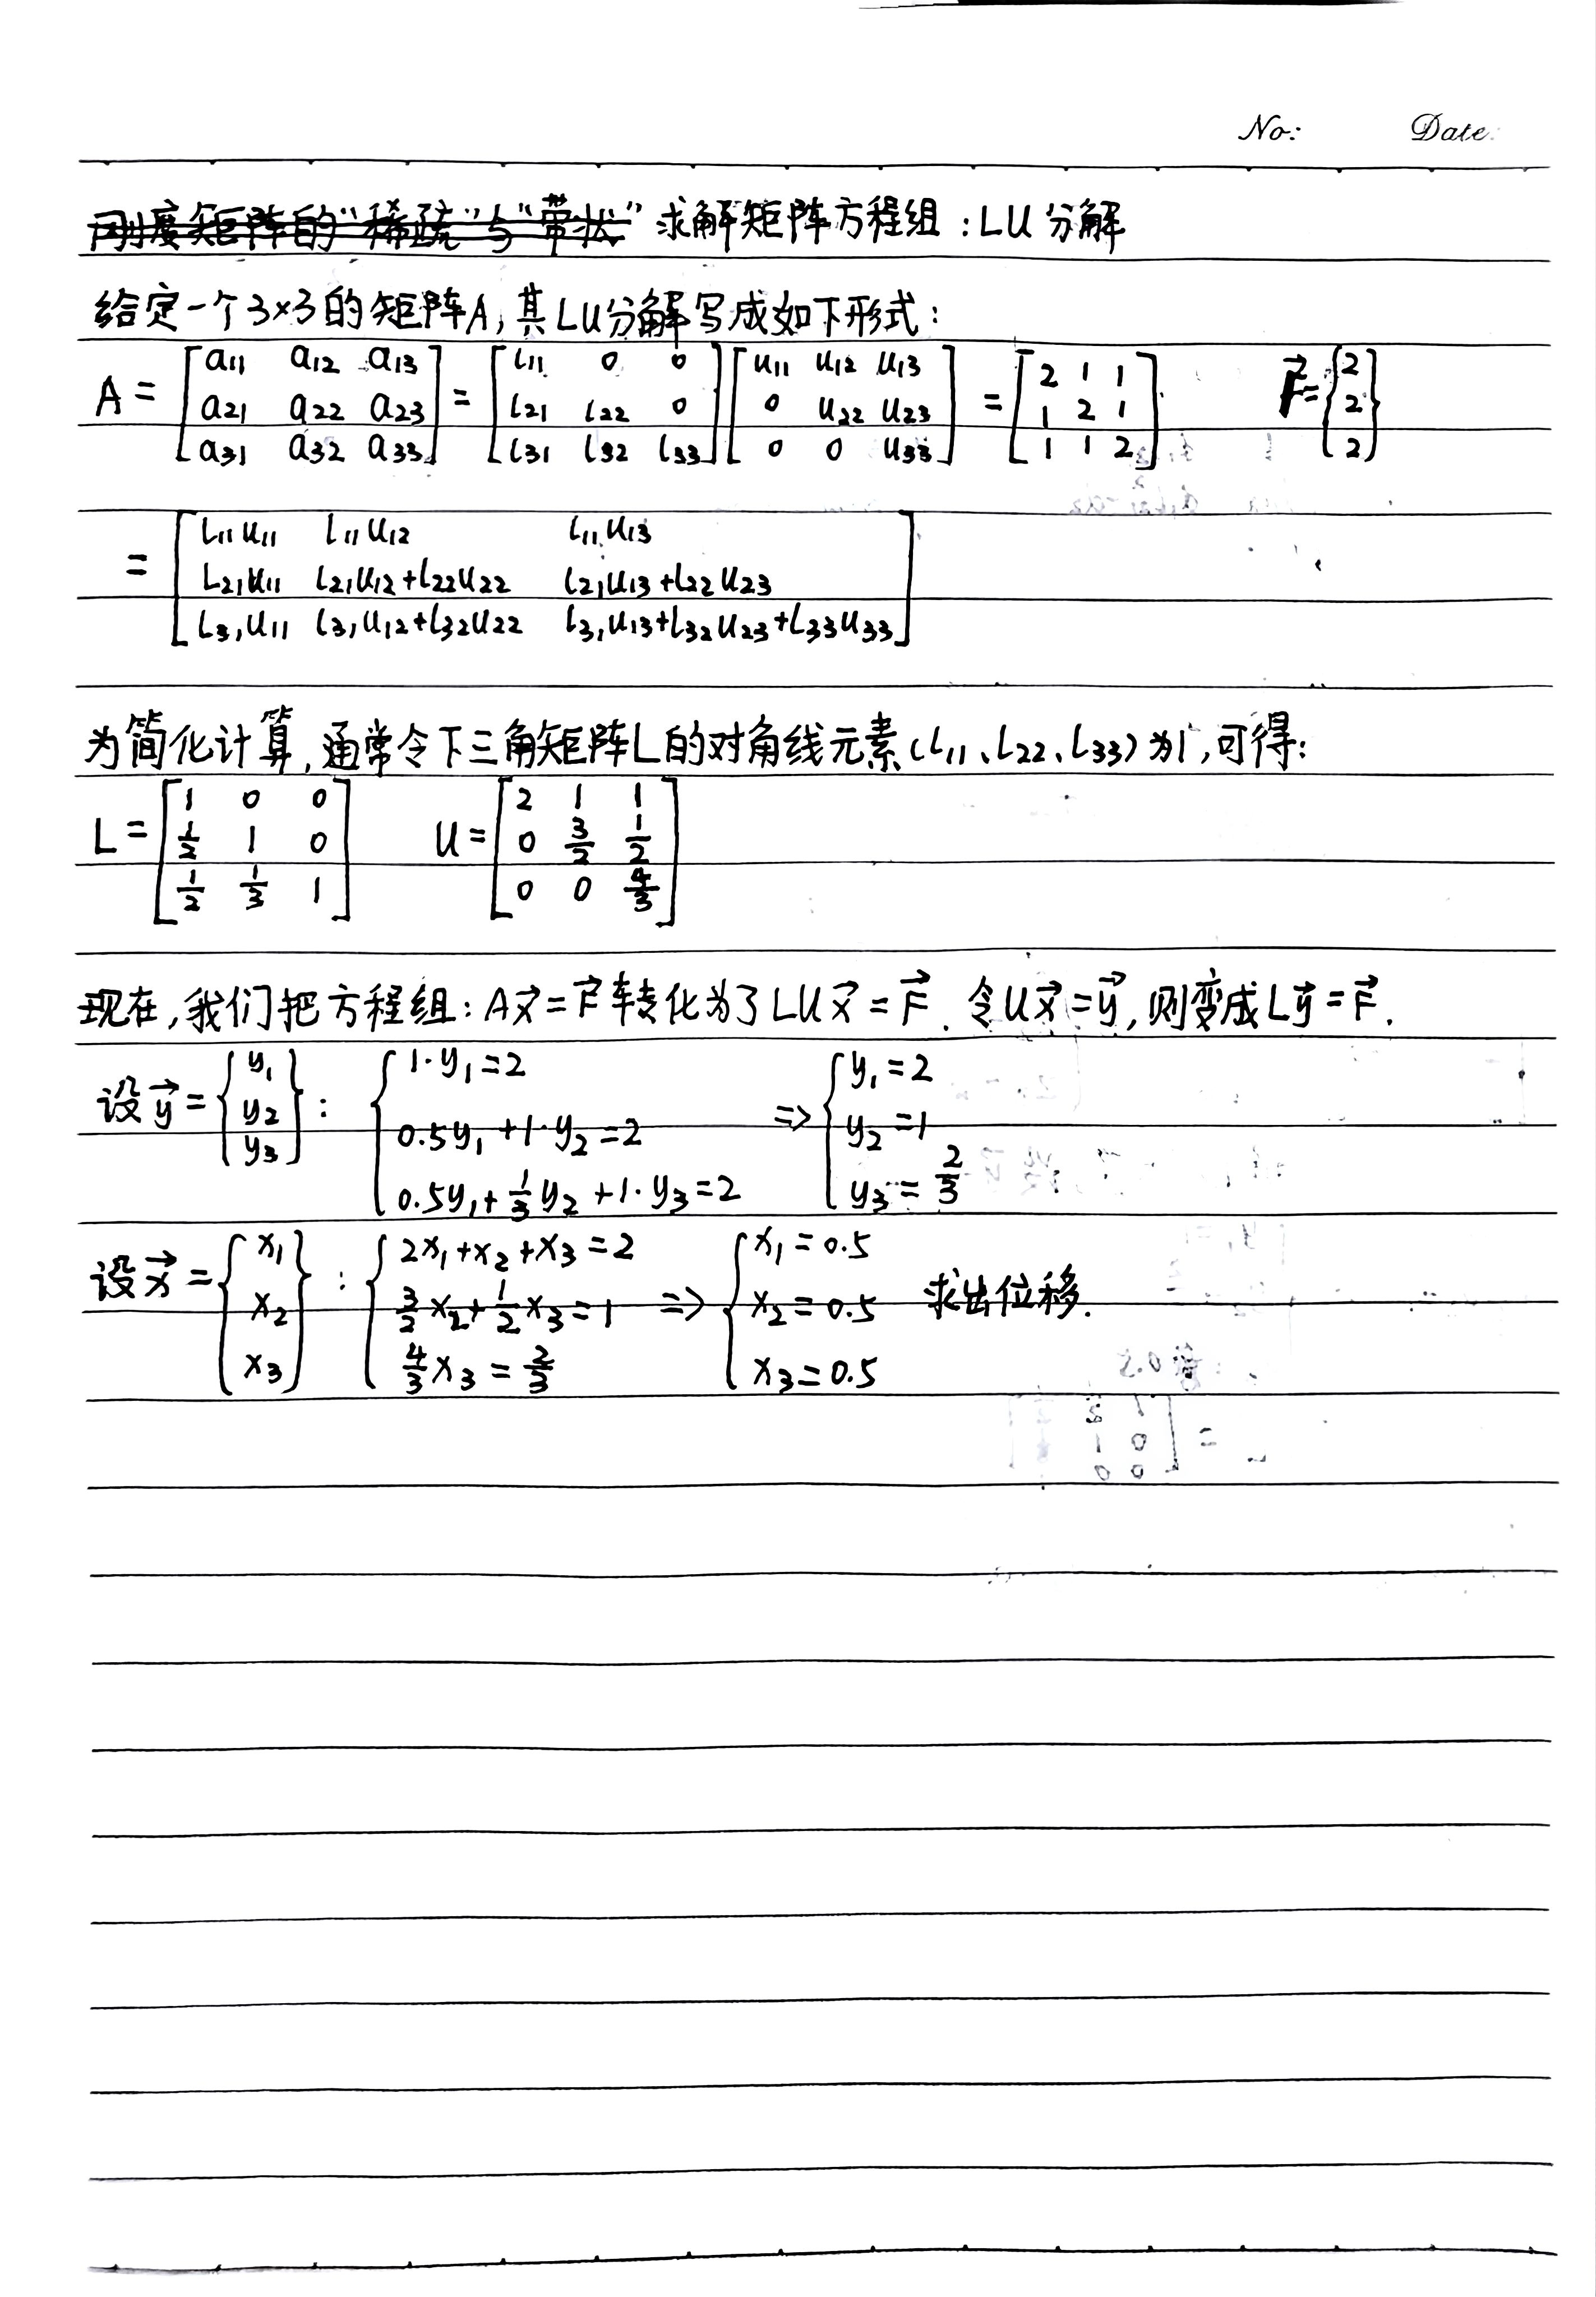 No: Date:
刚度矩阵的“稀疏”与“带状” 求解矩阵方程组:LU分解
给定一个3×3的矩阵A,其LU分解写成如下形式:
A = [a11 a12 a13; a21 a22 a23; a31 a32 a33] = [l11 0 0; l21 l22 0; l31 l32 l33] [u11 u12 u13; 0 u22 u23; 0 0 u33] = [2 1 1; 1 2 1; 1 1 2] F⃗ = {2; 2; 2}
= [l11u11 l11u12 l11u13; l21u11 l21u12+l22u22 l21u13+l22u23; l31u11 l31u12+l32u22 l31u13+l32u23+l33u33]
为简化计算,通常令下三角矩阵L的对角线元素(l11、l22、l33)为1,可得:
L = [1 0 0; 1/2 1 0; 1/2 1/3 1] U = [2 1 1; 0 3/2 1/2; 0 0 4/3]
现在,我们把方程组:Ax⃗=F⃗转化为了LUx⃗=F⃗.令Ux⃗=y⃗,则变成Ly⃗=F⃗.
设y⃗={y1; y2; y3}: {1·y1=2; 0.5y1+1·y2=2; 0.5y1+1/3y2+1·y3=2 => {y1=2; y2=1; y3=2/3
设x⃗={x1; x2; x3}: {2x1+x2+x3=2; 3/2x2+1/2x3=1; 4/3x3=2/3 => {x1=0.5; x2=0.5; x3=0.5 求出位移.